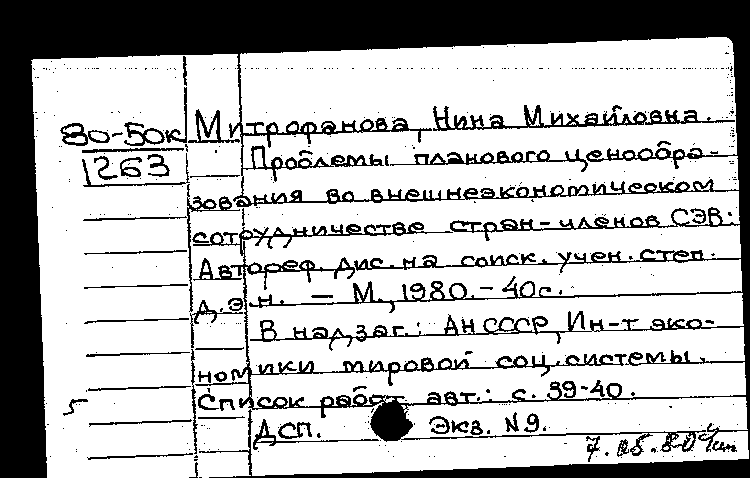 80-50к Митрофанова, Нина Михайловна.
1263 Проблемы планового ценообра-
зования во внешнеэкономическом
сотрудничестве стран-членов СЭВ:
Автореф. дис. на соиск. учен. степ.
д.э.н. – М., 1980. – 40с.
В надзаг.: АН СССР, Ин-т эко-
номики мировой соц. системы.
Список работ авт.: с. 39-40.
ДСП. Экз. N9.
7.05.80